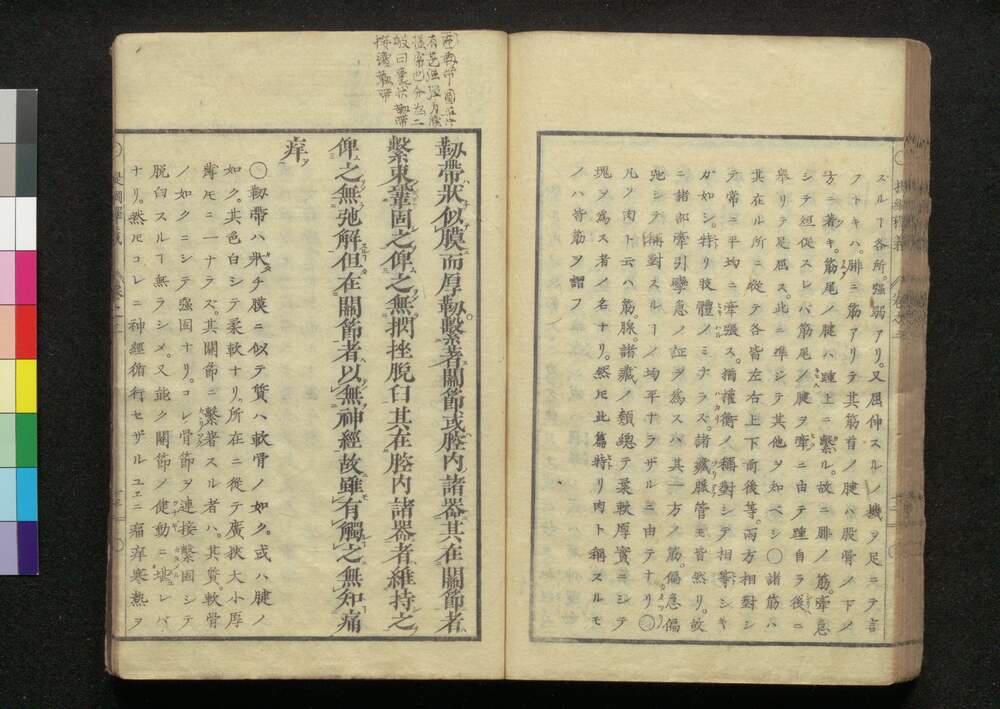 スルー各所。強弱アリ。又屈伸スルノ機ヲ足ニテ言
フトキハ。腓ニ筋アリテ其筋首ノ腱ハ股骨ノ下ノ
方ニ著キ。筋尾ノ腱ハ踵上ニ繫ル。故ニ腓ノ筋。牽急
シテ短促スレバ筋尾ノ腱ヲ牽ニ由テ踵自ラ後ニ
擧リテ足屈ス。此ニ準シテ其他ヲ知ベシ〇諸筋ハ
其在ル所ニ從テ各皆左右上下前後等。兩方相對シ
テ常ニ平均ニ牽張ス。猶權衡ノ稱對シテ相等シキ
ガ如シ。特リ肢體ノミナラズ。諸藏臓管モ皆然リ。故
ニ諸部牽引攣急ノ証ヲ為スハ其一方ノ筋。偏急偏
弛シテ稱對スルーノ均平ナラザルニ由テナリ〇
凡ソ肉ト云ハ筋。腺。諸藏ノ類總テ柔軟厚實ニシテ
塊ヲ為ス者ノ名ナリ。然𪜈此篇特リ肉ト稱スルモ
ノハ皆筋ヲ謂フ
有色
日
韌帶
韌帶
韌帶狀似膜而厚韌。繫著關節或腔内諸器其在關節者
繫束鞏固之俾之無捫挫脫臼其在腔内諸器者維持之
俾之無弛解但在關節者以無神經故雖有觸之無知痛
痒
〇韌帶ハ狀チ膜ニ似テ質ハ軟骨ノ如ク。或ハ腱ノ
如ク。其色白シテ柔軟ナリ。所在ニ從テ廣狹大小厚
薄モニ一ナラズ。其關節ニ繫著スル者ハ。其質。軟骨
ノ如クニシテ强固ナリ。コレ骨節ヲ連接繫固シテ
脫臼スルー無ラシメ。又能ク關節ノ健動ニ堪レバ
ナリ。然𪜈コレニ神經循行セザルユヱニ痛痒寒熱ヲ